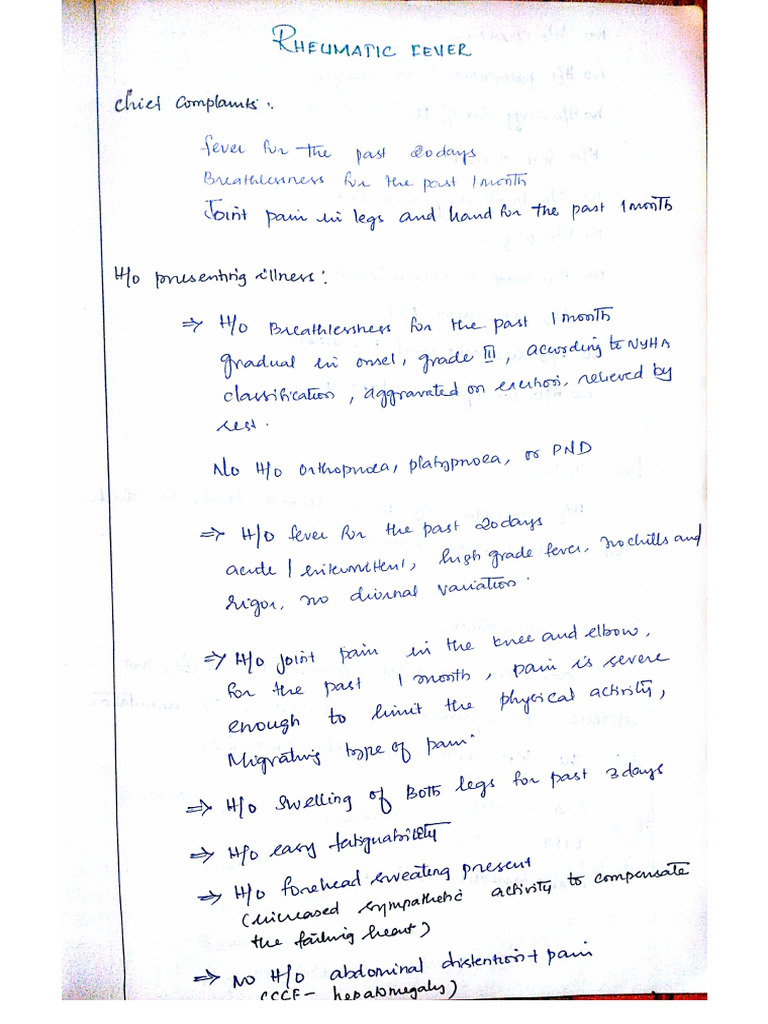 RHEUMATIC FEVER
Chief complaints:.
fever for the past 20days
Breathlessness for the past 1 month
Joint pain in legs and hand for the past 1 month
H/o presenting illness:
⇒ H/o Breathlessness for the past 1 month
gradual in onset, grade III, according to NYHA
classification, aggravated on exertion, relieved by
rest.
No H/o orthopnoea, platypnoea, or PND
⇒ H/o fever for the past 20days
acute / intermittent, high grade fever, no chills and
rigor, no diurnal variation.
⇒ H/o joint pain in the knee and elbow,
for the past 1 month, pain is severe
enough to limit the physical activity,
Migrating type of pain.
⇒ H/o swelling of Both legs for past 3days
⇒ H/o easy fatiguability
⇒ H/o forehead sweating present
(increased sympathetic activity to compensate
the failing heart)
⇒ NO H/o abdominal distention + pain
(CCF- hepatomegaly)